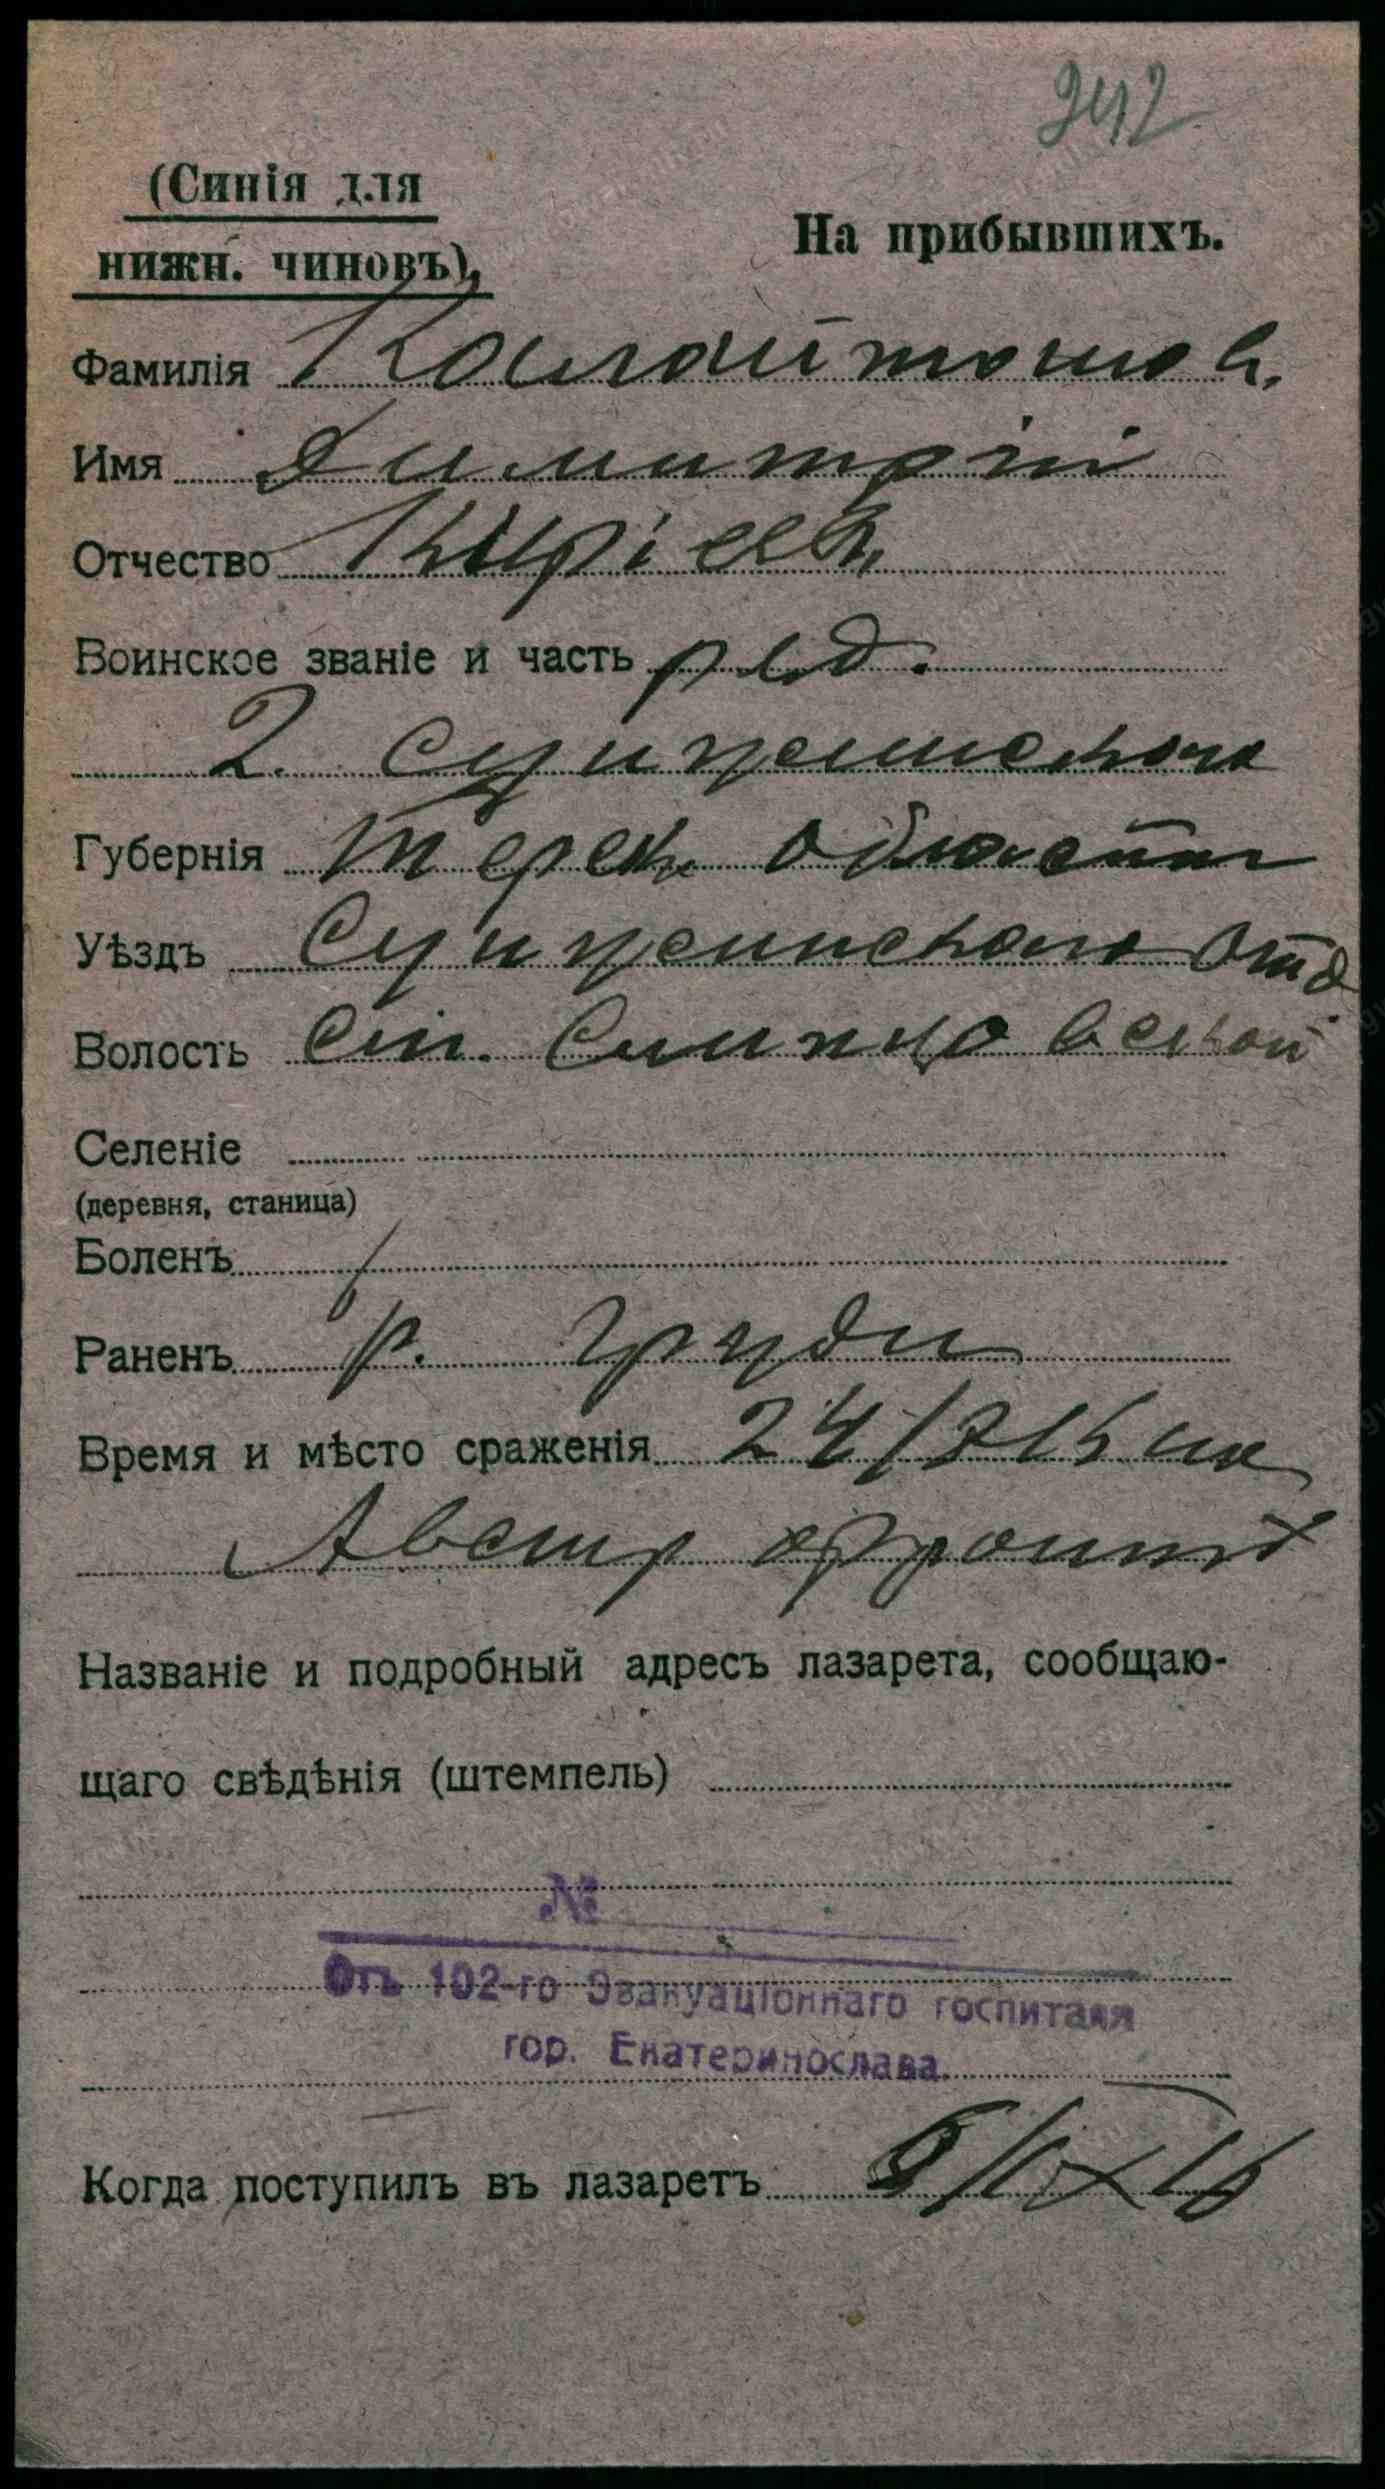 242
(Синія для
нижн. чиновъ).
На прибывшихъ.
Фамилія
Имя Димитрій
Отчество Киріев.
Воинское званіе и часть ряд.
2. Сунженскаго
Губернія Терск. области
Уѣздъ Сунженскаго отд
Волость ст. Слипцовской
Селеніе
(деревня, станица)
Боленъ
Раненъ р. груди
Время и мѣсто сраженія на
Австр фронтѣ
Названіе и подробный адресъ лазарета, сообщаю-
щаго свѣдѣнія (штемпель)
№
Отъ 102-го Эвакуаціоннаго госпиталя
гор. Екатеринослава.
Когда поступилъ въ лазаретъ